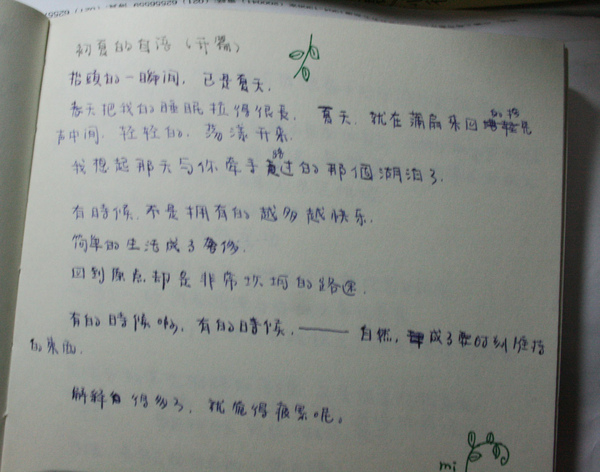 初夏的自语（开篇）
抬头的一瞬间，已是夏天.
春天把我的睡眠拉得很长. 夏天，就在蒲扇来回的摇晃
声中间，轻轻的，荡漾开来.
我想起那天与你牵手路过的那個湖泊了.
有時候，不是拥有的越多越快乐.
简单的生活成了奢侈.
回到原点却是非常坎坷的路途.
有的時候啊，有的時候，—— 自然，成了
的東西.
解释得多了，就觉得疲累呢。
mi